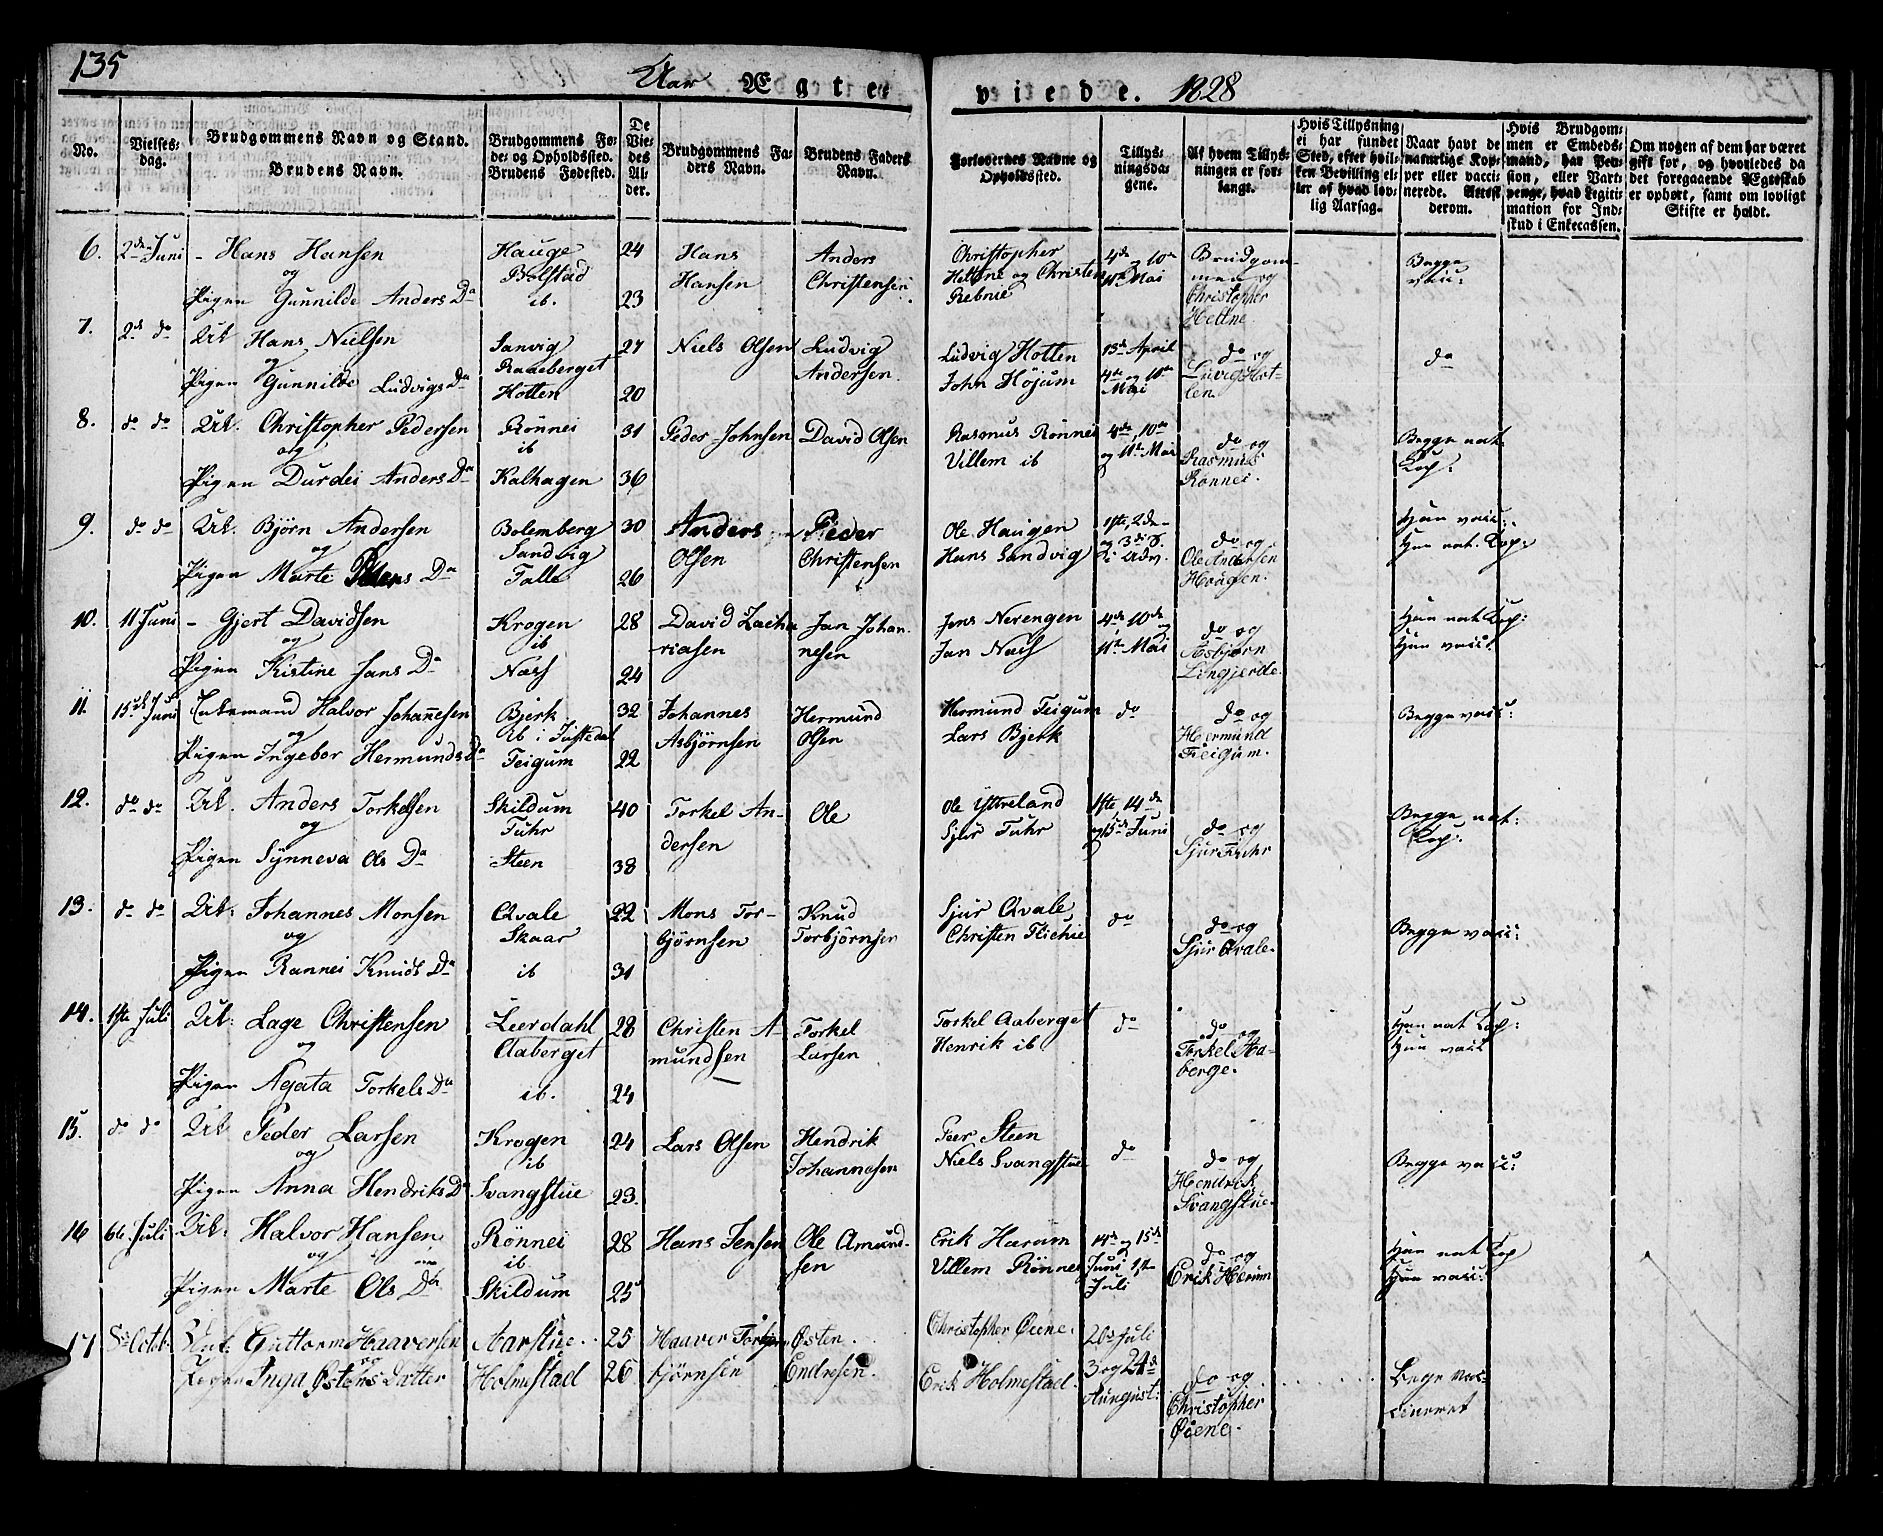 135
Aar Ægte-
viede. 1828
No.
Vielses-
dag.
Brudgommens Navn og Stand.
Brudens Navn.
Brudgommens Fø-
de- og Opholdssted.
Brudens Fødested.
De
Vie-
des
Al-
der.
Brudgommens Fa-
ders Navn.
Brudens Faders
Navn.
Forlovernes Navne og
Opholdssted.
Tillys-
ningsda-
gene.
Af hvem Tillys-
ningen er for-
langt.
Hvis Tillysning
ei har fundet
Sted, efter hvil-
ken Bevilling el-
ler af hvad lov-
lig Aarsag.
Naar havt de
naturlige Kop-
per eller vacci-
nerede. Attest
derom.
Hvis Brudgom-
men er Embeds-
mand, har Pen-
sion, eller Vart-
penge, hvad Legiti-
mation for Ind-
skud i Enkecassen.
Om nogen af dem har været
gift før, og hvorledes da
det foregaaende Ægteskab
er ophørt, samt om lovligt
Skifte er holdt.
6. 2den Juni - Hans Hansen
og
Pigen Gunnilde Anders Da
Hauge
Bolstad
ib.
24
23
Hans
Hansen
Anders
Christensen
Christopher
Hettne og Christen
Rebnie
4de og 10de
11te Mai
Brudgom-
men og
Christopher
Hettne
Begge
vacc:
7. 2de do Uk Hans Nielsen
og
Pigen Gunnilde Ludvigs Da
Sanvig
Raaeberget
Hotten
27
20
Niels Olsen
Ludvig
Andersen
Ludvig Hotten
John Höjum
13de April
4de og 10de
Mai
do og
Ludvig Hot-
ten
do
8. do do Uk. Christopher Pedersen
og
Pigen Durdei Anders Da
Rønnei
ib
Kalhagen
31
36
Peder Johnsen
David Olsen
Rasmus Rönnei
Villem ib
4de, 10de
og 11te Mai
do og
Rasmus
Rönnei.
Begge nat
Kop:
9. do do Uk. Bjørn Andersen
og
Pigen Marte Peders Da
Bolemberg
Sandvig
Falle
30
26
Anders
Olsen
Peder
Christensen
Ole Haugen
Hans Sandvig
1ste, 2de
og 3die S.
i Adv.
do og
Ole Andersen
Haugen.
Han vacc:
Hun nat. Kop:
10. 11 Juni - Gjert Davidsen
og
Pigen Kistine Jans Da
Krogen
ib
Næss
28
24
David Zacha
riasen
Jan Johan-
nesen
Jens Nerengen
Jan Næss
4de 10de
11te Mai
do og
Asbjørn
Lingjerde.
Han nat Kop:
Hun vacc:
11. 15de Juni Enkemand Halvor Johanesen
og
Pigen Ingebor Hermunds Da
Bjerk
ib i Justedal
Teigum
32
22
Johannes
Asbjørnsen
Hermund
Olsen
Hermund Teigum
Lars Bjerk
do
do og
Hermund
Teigum.
Begge vacc:
12. do do Uk. Anders Torkelsen
og
Pigen Synneva Ols Da
Skildum
Fuhr
Steen
40
38
Torkel An-
dersen
Ole
Ole Ytreland
Sjur Fuhr
1ste 14de
og 15de Juni
do og
Sjur Fuhr
Begge nat:
Kop:
13. do do Uk: Johannes Monsen
og
Pigen Rannei Knuds Da
Qvale
Skaar
ib
22
31
Mons Tor-
bjørnsen
Knud
Torbjørnsen
Sjur Qvale
Christen Flichie
do
do og
Sjur Qvale.
Begge vacc:
14. 1ste Juli Uk: Lage Christensen
og
Pigen Agata Torkels Da
Leerdahl
Aaberget
ib.
28
24
Christen A-
mundsen
Torkel
Larsen
Torkel Aaberget
Henrik ib
do
do og
Torkel Aa-
berge.
Han nat Kop:
Hun vacc
15. do do Uk Peder Larsen
og
Pigen Anna Hendriks Da
Krogen
ib
Svangstue
24
23.
Lars Olsen
Hendrik
Johannesen
Peer Steen
Niels Svangstue
do
do og
Hendrik
Svangstue.
Begge vacc:
16 6te Juli Uk: Halvor Hansen
og
Pigen Marte Ols Da
Rönnei
ib.
Skildum
28
25
Hans Jensen
Ole Amund-
sen
Erik Harum
Villem Rønnei
14de og 15de
Juni 1ste
Juli
do og
Erik Harum
Han nat Kop
Hun vacc:
17 5te Octob: Unk: Guttorm Haaversen
og
Pigen Inga Østens Datter
Aarstue.
Holmestad
25
26
Haaver Torbjørn
bjørnsen
Østen.
Endresen.
Christopher Øiene.
Erik Holmestad.
20de Juli
3 og 24de
Aungust.
do og.
Christopher
Øiene.
Bege vac-
cineret